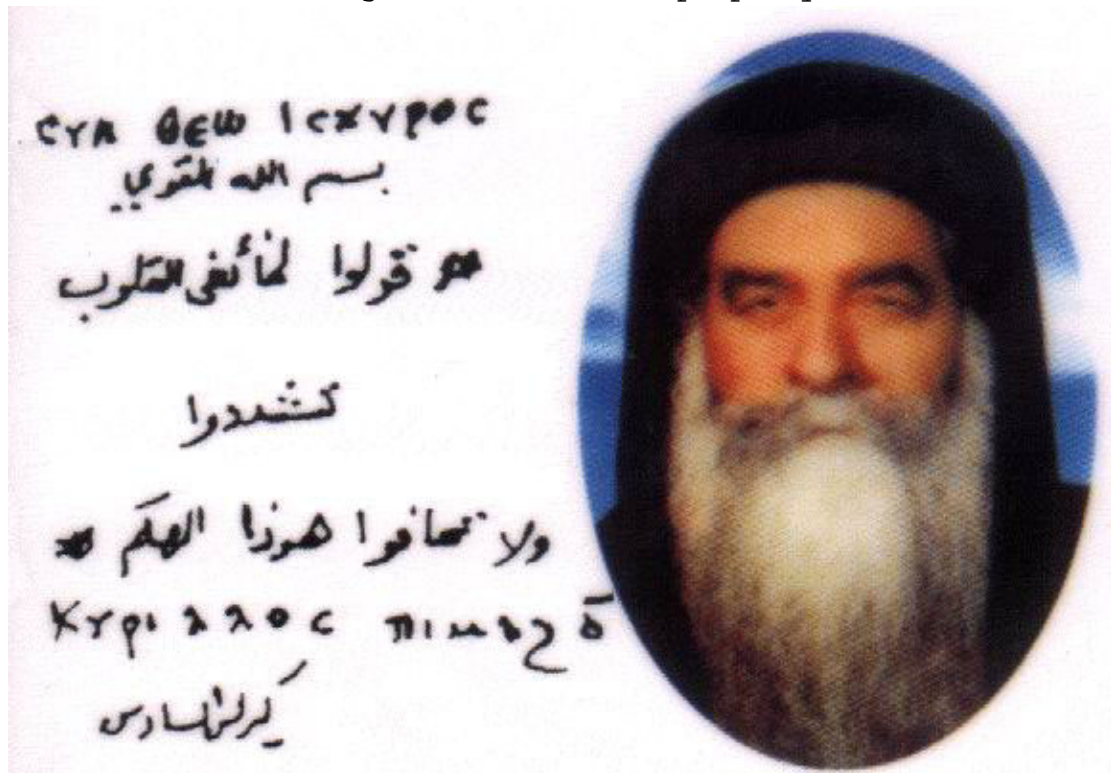 ⲤⲨⲚ ⲐⲈⲰ ⲒⲤⲬⲨⲢⲞⲤ
بسم الله القوي
قولوا لخائفى القلوب
تشددوا
ولا تخافوا هوذا الهكم
Ⲕⲩⲣⲓⲗⲗⲟⲥ ⲡⲓⲙⲁϩ ⲋ̅
كيرلس السادس